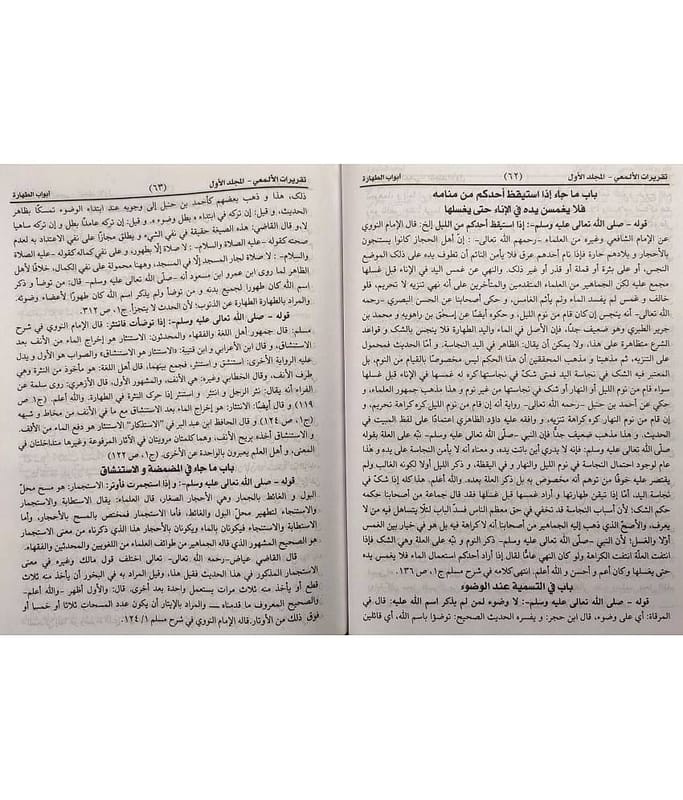 تقريرات الألمعي - المجلد الأول (٦٢) أبواب الطهارة
باب ما جاء إذا استيقظ أحدكم من منامه
فلا يغمسن يده في الإناء حتى يغسلها
قوله - صلى الله تعالى عليه وسلم-: إذا استيقظ أحدكم من الليل إلخ: قال الإمام النووي
عن الإمام الشافعي وغيره من العلماء -رحمهم الله تعالى- : إنّ أهل الحجاز كانوا يستنجون
بالأحجار و بلادهم حارة فإذا نام أحدهم عرق فلا يأمن النائم أن تطوف يده على ذلك الموضع
النجس، أو على بثرة أو قملة أو قذر أو غير ذلك. والنهي عن غمس اليد في الإناء قبل غسلها
مجمع عليه لكن الجماهير من العلماء المتقدمين والمتأخرين على أنه نهي تنزيه لا تحريم، فلو
خالف و غمس لم يفسد الماء ولم يأثم الغامس، و حكى أصحابنا عن الحسن البصري -رحمه
الله تعالى- أنه ينجس إن كان قام من نوم الليل، و حكوه أيضًا عن إسحق بن راهويه و محمد بن
جرير الطبري وهو ضعيف جدًّا، فإن الأصل في الماء واليد الطهارة فلا ينجس بالشك و قواعد
الشرع متظاهرة على هذا، ولا يمكن أن يقال: الظاهر في اليد النجاسة. و أمّا الحديث فمحمول
على التنزيه، ثم مذهبنا و مذهب المحققين أن هذا الحكم ليس مخصوصًا بالقيام من النوم، بل
المعتبر فيه الشك في نجاسة اليد فمتى شكّ في نجاستها كره له غمسها في الإناء قبل غسلها
سواء قام من نوم الليل أو النهار أو شك في نجاستها من غير نوم و هذا مذهب جمهور العلماء، و
حكي عن أحمد بن حنبل -رحمه الله تعالى- رواية أنه إن قام من نوم الليل كره كراهة تحريم، و
إن قام من نوم النهار كره كراهة تنزيه، و وافقه عليه داؤد الظاهري اعتمادًا على لفظ المبيت في
الحديث. و هذا مذهب ضعيف جدًّا فإن النبي -صلى الله تعالى عليه وسلم- نبّه على العلة بقوله
: فإنه لا يدري أين باتت يده، و معناه أنه لا يأمن النجاسة على يده و هذا
عام لوجود احتمال النجاسة في نوم الليل والنهار و في اليقظة، و ذكر الليل أولا لكونه الغالب ولم
يقتصر عليه خوفًا من توهم أنه مخصوص به بل ذكر العلة بعده. والله أعلم. هذا كله إذا شكّ في
نجاسة اليد، أمّا إذا تيقن طهارتها و أراد غمسها قبل غسلها فقد قال جماعة من أصحابنا حكمه
حكم الشك؛ لأن أسباب النجاسة قد تخفى في حق معظم الناس فسدّ الباب لئلّا يتساهل فيه من لا
يعرف، والأصحّ الذي ذهب إليه الجماهير من أصحابنا أنه لا كراهة فيه بل هو في خيار بين الغمس
أولا والغسل؛ لأن النبي -صلى الله تعالى عليه وسلم- ذكر النوم و نبّه على العلة وهي الشك فإذا
انتفت العلّة انتفت الكراهة ولو كان النهي عامًّا لقال إذا أراد أحدكم استعمال الماء فلا يغمس يده
حتى يغسلها وكان أعم و أحسن و الله أعلم. انتهى كلامه في شرح مسلم ج١، ص١٣٦.
باب في التسمية عند الوضوء
قوله - صلى الله تعالى عليه وسلم-: لا وضوء لمن لم يذكر اسم الله عليه: قال في
المرقاة: أي على وضوء، قال ابن حجر: و يفسره الحديث الصحيح: توضؤا باسم الله، أي قائلين
تقريرات الألمعي - المجلد الأول (٦٣) أبواب الطهارة
ذلك، هذا و ذهب بعضهم كأحمد بن حنبل إلى وجوبه عند ابتداء الوضوء تمسكًا بظاهر
الحديث، و قيل: إن تركه في ابتداءه بطل وضوءه، و قيل: إن تركه عامدًا بطل و إن تركه ساهيا
لا، و قال القاضي: هذه الصيغة حقيقة في نفي الشيء و يطلق مجازًا على نفي الاعتداد به لعدم
صحته كقوله -عليه الصلاة والسلام- : لا صلاة إلّا بطهور، و على نفي كماله كقوله -عليه الصلاة
والسلام- : لا صلاة لجار المسجد إلّا في المسجد، وههنا محمولة على نفي الكمال، خلافًا لأهل
الظاهر لما روى ابن عمرو ابن مسعود أنه -صلّى الله تعالى عليه وسلم- قال: من توضأ و ذكر
اسم الله كان طهورا لجميع بدنه و من توضأ ولم يذكر اسم الله كان طهورًا لأعضاء وضوئه.
والمراد بالطهارة الطهارة عن الذنوب؛ لأن الحدث لا يتجزأ. ج١، ص٣١٢.
قوله - صلى الله تعالى عليه وسلم-: إذا توضأت فانتثر: قال الإمام النووي في شرح
مسلم: قال جمهور أهل اللغة والفقهاء والمحدثون: الاستنثار هو إخراج الماء من الأنف بعد
الاستنشاق، و قال ابن الأعرابي و ابن قتيبة: «الاستنثار هو الاستنشاق» والصواب هو الأول و يدل
عليه الرواية الأخرى: استنشق و استنثر، فجمع بينهما، قال أهل اللغة: هو مأخوذ من النثرة وهي
طرف الأنف، وقال الخطابي وغيره: هي الأنف، والمشهور الأول، قال الأزهري: روى سلمة عن
الفراء أنه يقال: نثر الرجل و انتثر و استنثر إذا حرك النثرة في الطهارة. والله أعلم. (ج١ ص
١١٩) و قال أيضًا: الانتثار: هو إخراج الماء بعد الاستنشاق مع ما في الأنف من مخاط و شبهه
(ج١، ص١٢٤) و قال الحافظ ابن عبد البر في "الاستذكار" الاستنثار هو دفع الماء من الأنف.
و الاستنشاق أخذه بريح الأنف، وهما كلمتان مرويتان في الآثار المرفوعة وغيرها متداخلتان في
المعنى، و أهل العلم يعبرون بالواحدة عن الأخرى. (ج١ ص١٢٢)
باب ما جاء في المضمضة و الاستنشاق
قوله - صلى الله تعالى عليه وسلم-: و إذا استجمرت فأوتر: الاستجمار: هو مسح محلّ
البول و الغائط بالجمار وهي الأحجار الصغار، قال العلماء: يقال الاستطابة والاستجمار
والاستنجاء لتطهير محلّ البول والغائط، فأما الاستجمار فمختص بالمسح بالأحجار، وأما
الاستطابة والاستنجاء فيكونان بالماء ويكونان بالأحجار هذا الذي ذكرناه من معنى الاستجمار
هو الصحيح المشهور الذي قاله الجماهير من طوائف العلماء من اللغويين والمحدثين والفقهاء.
قال القاضي عياض-رحمه الله تعالى- اختلف قول مالك وغيره في معنى
الاستجمار المذكور في هذا الحديث فقيل هذا، وقيل المراد به في البخور أن يأخذ منه ثلاث
قطع أو يأخذ منه ثلاث مرات يستعمل واحدة بعد أخرى، قال: والأول أظهر -والله أعلم-
والصحيح المعروف ما قدمناه— والمراد بالإيتار أن يكون عدد المسحات ثلاثا أو خمسا أو
فوق ذلك من الأوتار. قاله الإمام النووي في شرح مسلم ١/ ١٢٤.